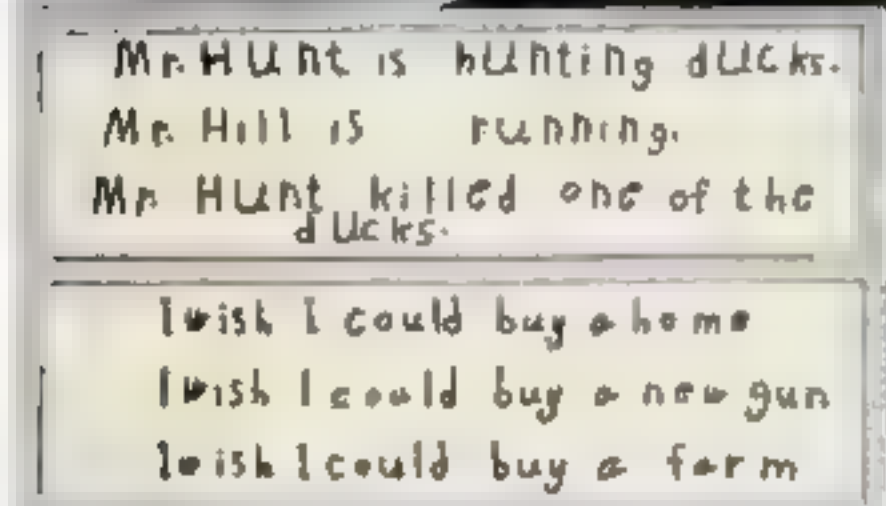 Mr. Hunt is hunting ducks.
Mr. Hill is running.
Mr Hunt killed one of the
ducks.
I wish I could buy a home
I wish I could buy a new gun
I wish I could buy a farm